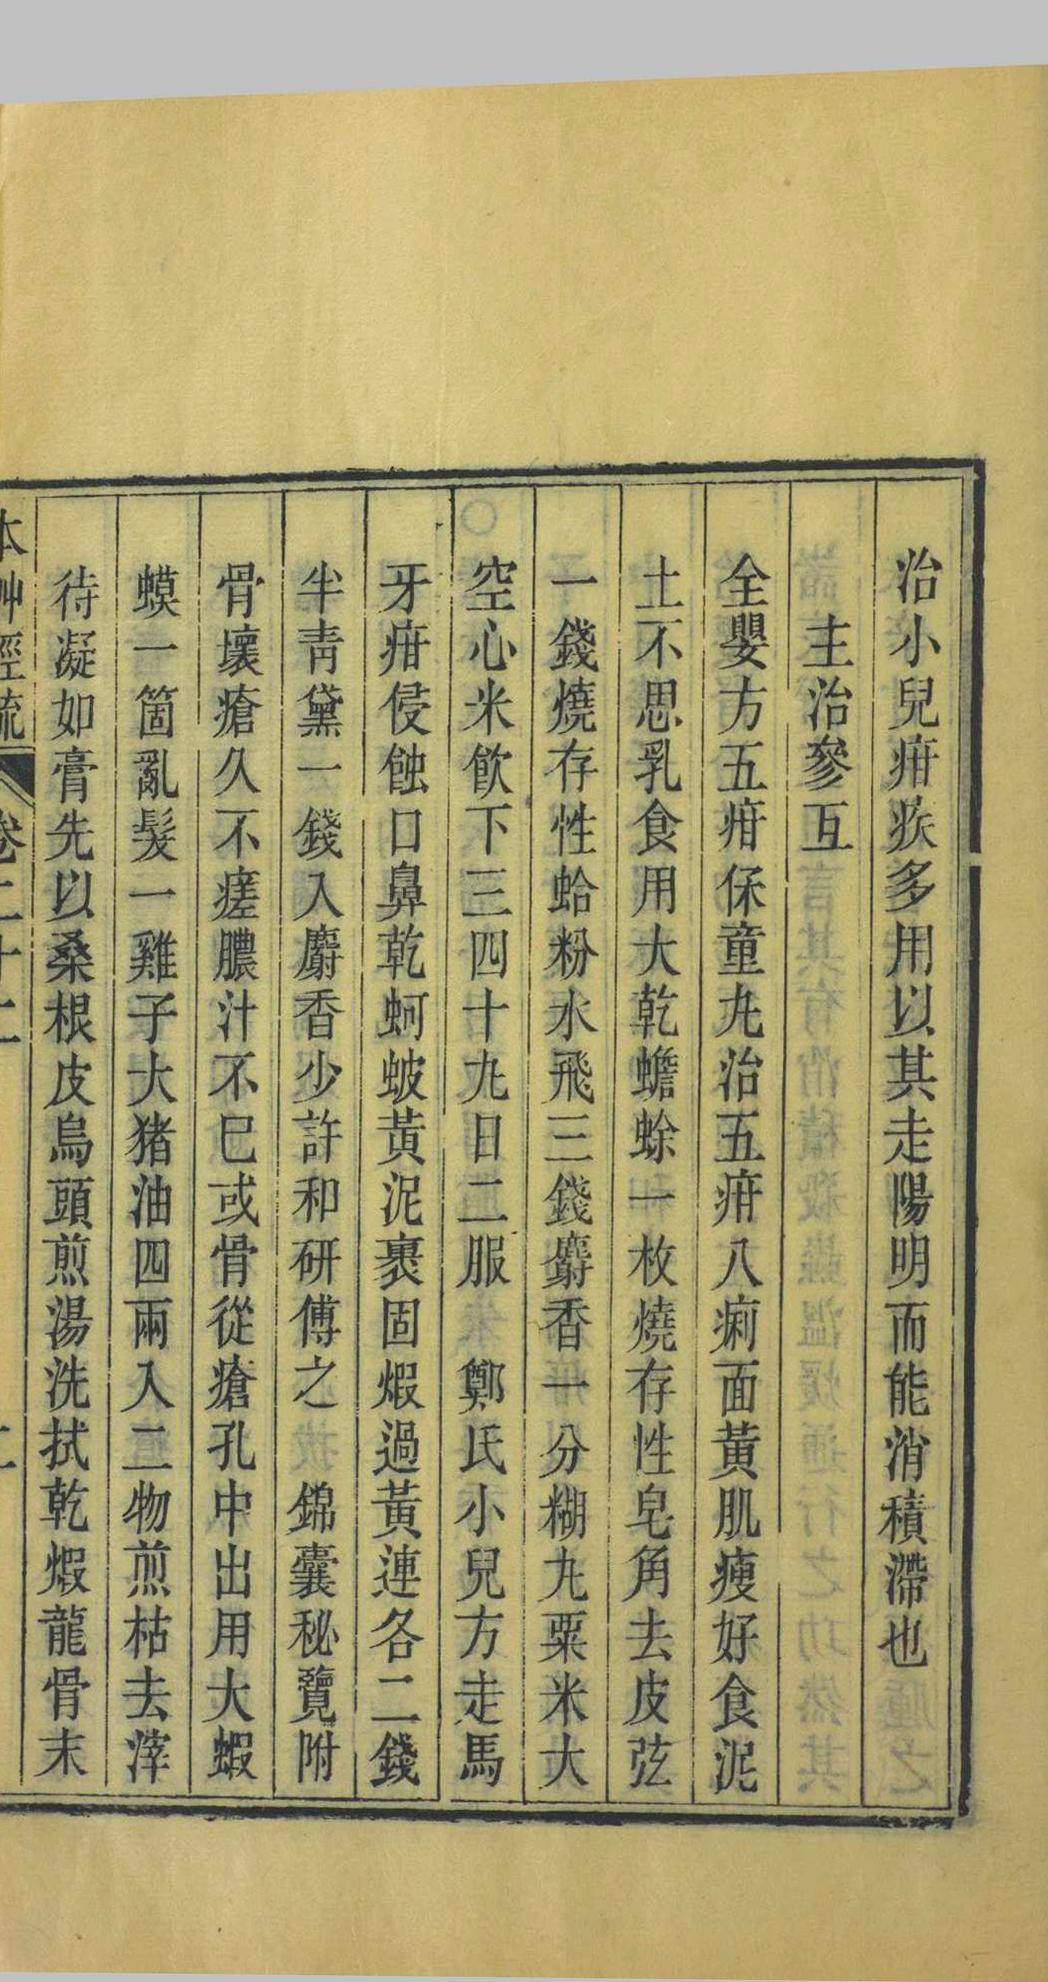 治小兒疳疾多用以其走陽明而能消積滯也
主治參互
全嬰方五疳保童丸治五疳八痢面黃肌瘦好食泥
土不思乳食用大乾蟾蜍一枚燒存性皂角去皮弦
一錢燒存性蛤粉水飛三錢麝香一分糊丸粟米大
空心米飲下三四十丸日二服　鄭氏小兒方走馬
牙疳侵蝕口鼻乾蚵蚾黃泥裹固煅過黃連各二錢
半青黛一錢入麝香少許和研傅之　錦囊秘覽附
骨壞瘡久不瘥膿汁不已或骨從瘡孔中出用大蝦
蟆一箇亂髮一雞子大猪油四兩入二物煎枯去滓
待凝如膏先以桑根皮烏頭煎湯洗拭乾煅龍骨末
本艸經疏　卷二十二　二